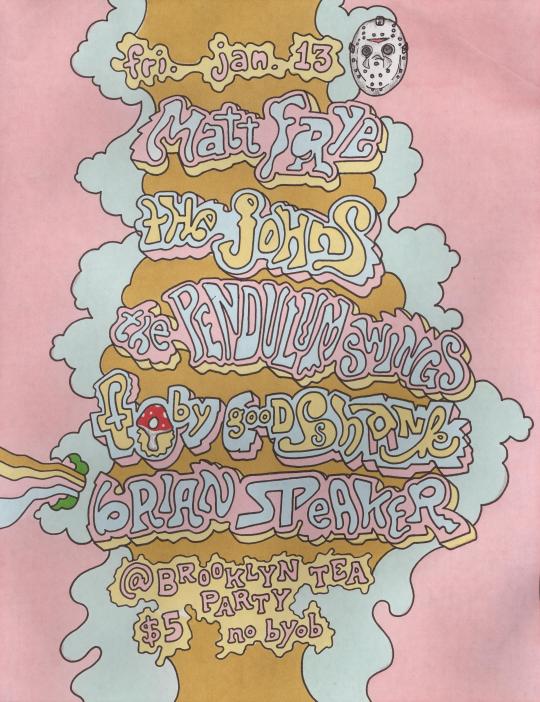 fri. jan. 13
Matt FRYE
the JOHNS
the PENDULUM SWINGS
toby gooDSshank
bRIAN SPEAKER
@ BROOKLYN TEA
PARTY
$5 no byob